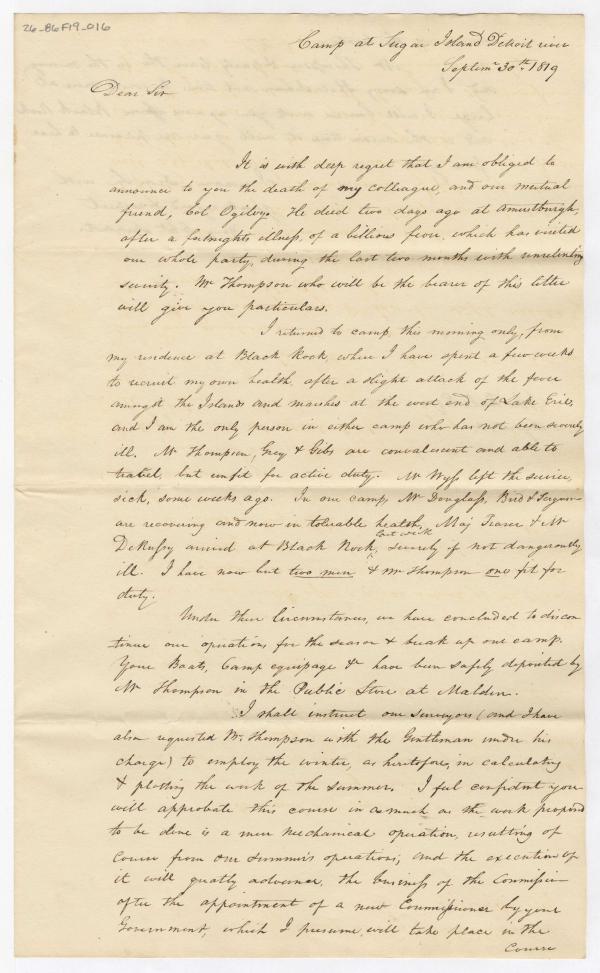 26-86F19-016
Camp at Sugar Island Detroit river
Septemr 30th 1819
Dear Sir
It is with deep regret that I am obliged to
announce to you the death of my colleague, and our mutual
friend, Col Ogilvy. He died two days ago at Amurstburgh,
after a fortnights illness, of a billious fever, which has visited
our whole party, during the last two months with unrelenting
severity. Mr Thompson who will be the bearer of this letter
will give you particulars.
I returned to camp this morning only, from
my residence at Black Rock, where I have spent a few weeks
to recruit my own health, after a slight attack of the fever
amongst the Islands and marshes at the west end of Lake Erie,
and I am the only person in either camp who has not been severely
ill. Mr Thompson, Grey & Gibs are convalescent and able to
travel, but unfit for active duty. Mr Wyss left the service,
sick, some weeks ago. In our camp, Mr Douglass, Bird & Ferguson
are recovering and now in tolerable health, Maj Fraser & Mr
last week
DeRussy arrived at Black Rock, severely if not dangerously
ill. I have now but two men & Mr Thompson one fit for
duty.
Under these Circumstances, we have concluded to discon
tinue our operations for the season & break up our camp.
Your Boats, Camp equipage &c have been safely deposited by
Mr Thompson in the Public Store at Malden.
I shall instruct our surveyors (and I have
also requested Mr. Thompson with the Gentleman under his
charge) to employ the winter, as heretofore, in calculating
& plotting the work of the summer. I feel confident you
will approbate this course in as much as the work proposed
to be done is a mere mechanical operation, resulting of
course from our summer's operations; and the execution of
it will greatly advance, the business of the Commission
after the appointment of a new Commissioner by your
Government, which I presume, will take place in the
course